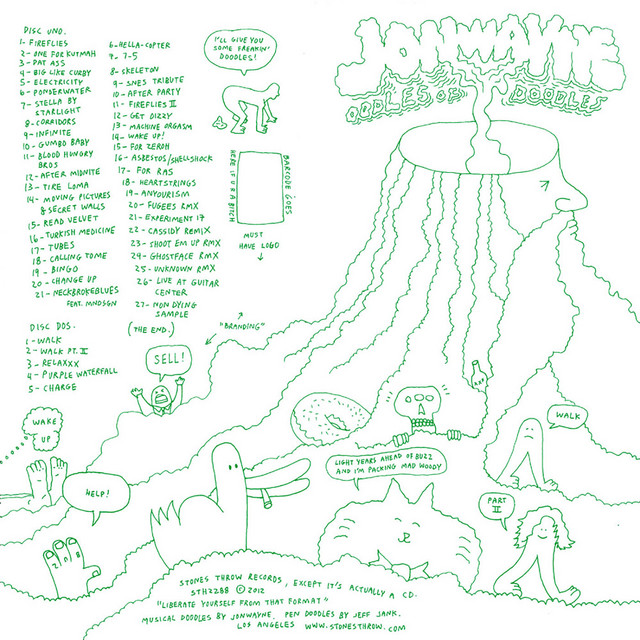 DISC UNO.
1- FIREFLIES
2- ONE FOR KUTMAH
3- PAT ASS
4- BIG LIKE CURBY
5- ELECTRICITY
6- PONDERWATER
7- STELLA BY
STARLIGHT
8- CORRIDORS
9- INFINITE
10- GUMBO BABY
11- BLOOD HUNGRY
BROS
12- AFTER MIDNITE
13- TIRE LOMA
14- MOVING PICTURES
& SECRET WALLS
15- READ VELVET
16- TURKISH MEDICINE
17- TUBES
18- CALLING TOME
19- BINGO
20- CHANGE UP
21- NECKBROKEBLUES
FEAT. MNDSGN
DISC DOS.
1- WALK
2- WALK PT. II
3- RELAXXX
4- PURPLE WATERFALL
5- CHARGE
6- HELLA-COPTER
7- 7-5
8- SKELETON
9- SNES TRIBUTE
10- AFTER PARTY
11- FIREFLIES II
12- GET DIZZY
13- MACHINE ORGASM
14- WAKE UP!
15- FOR ZEROH
16- ASBESTOS/SHELLSHOCK
17- FOR RAS
18- HEARTSTRINGS
19- ANYOURISM
20- FUGEES RMX
21- EXPERIMENT 17
22- CASSIDY REMIX
23- SHOOT EM UP RMX
24- GHOSTFACE RMX
25- UNKNOWN RMX
26- LIVE AT GUITAR
CENTER
27- NON DYING
SAMPLE
(THE END.)
"BRANDING"
I'LL GIVE YOU
SOME FREAKIN'
DOODLES!
BARCODE GOES
HERE IF U R A BITCH
MUST
HAVE LOGO
JONWAYNE
OODLES OF DOODLES
SELL!
WAKE
UP
HELP!
R.I.P
WALK
LIGHT YEARS AHEAD OF BUZZ
AND I'M PACKING MAD WOODY
PART
II
STONES THROW RECORDS, EXCEPT IT'S ACTUALLY A CD.
STH2288 © 2012
"LIBERATE YOURSELF FROM THAT FORMAT"
MUSICAL DOODLES BY JONWAYNE. PEN DOODLES BY JEFF JANK.
LOS ANGELES WWW.STONESTHROW.COM